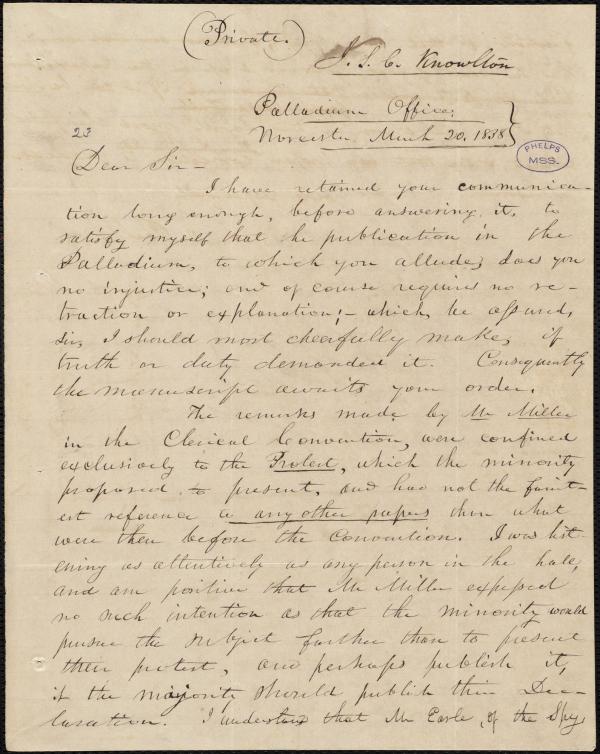 (Private.)
J. S. C. Knowlton
Palladium Office,
Worcester March 20. 1838
23
PHELPS
MSS.
Dear Sir—
I have retained your communica-
tion long enough, before answering it, to
satisfy myself that the publication in the
Palladium, to which you allude, does you
no injustice; and of course requires no re-
traction or explanation;— which, be assured,
sir, I should most cheerfully make, if
truth or duty demanded it. Consequently
the manuscript awaits your order.
The remarks made by Mr Miller
in the Clerical Convention, were confined
exclusively to the Protest, which the minority
proposed to present, and had not the faint-
est reference to any other papers than what
were then before the Convention. I was list-
ening as attentively as any person in the hall,
and am positive that Mr Miller expressed
no such intention as that the minority would
pursue the subject farther than to present
their protest, and perhaps publish it,
if the majority should publish their Dec-
laration. I understand that Mr Earle, of the Spy,